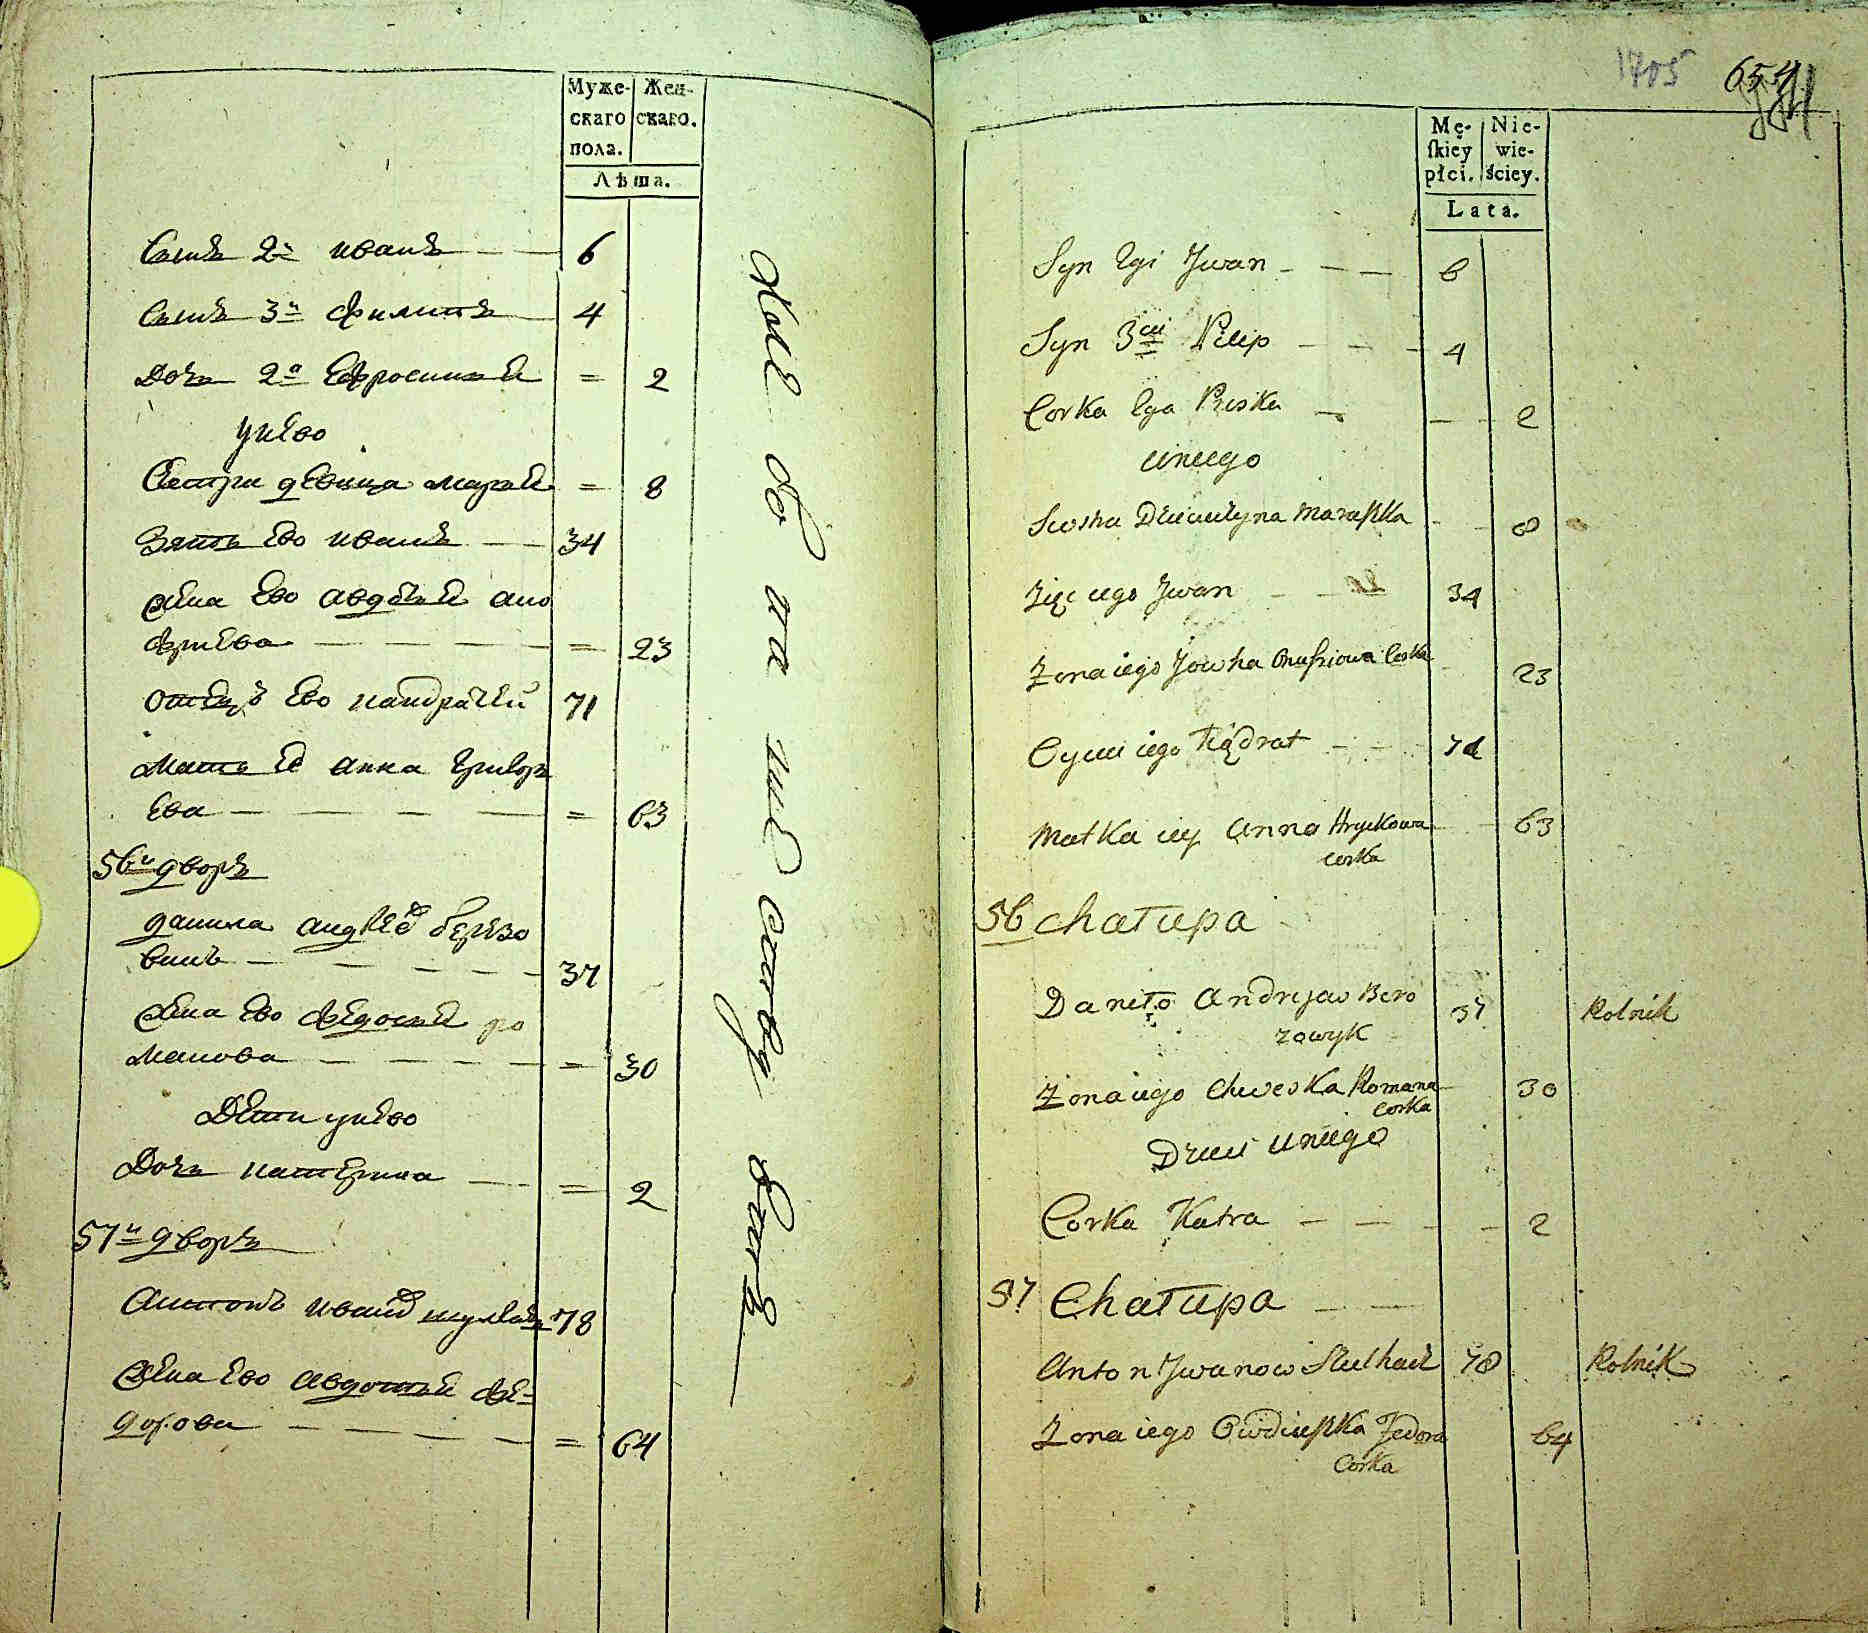 Муже-
скаго
пола.
Жен-
скаго.
Лѣта.
Сынъ 2й иванъ — — 6
Сынъ 3й филипъ — 4
Дочь 2а Ефросинья = 2
унево
Сестра девица марья = 8
Зять Ево иванъ — 34
Жена Ево авдотья ано
фриева — — — — = 23
Отецъ Ево кандратей 71
Мать Ее анна Григорь
Ева — — — — = 63
56й дворъ
данила андреев березо
викъ — — — — — 37
Жена Ево федосья ро
манова — — — — = 30
Дети унево
Дочь катерина — — = 2
57й дворъ
Антонъ иванов 78
Жена Ево авдотья фе=
дорова — — — — = 64
1705
654
Mę-
ſkiey
płci.
Nie-
wie-
ściey.
Lata.
Syn 2gi Jwan - — — 6
Syn 3ci Pilip — — - 4
Corka 2ga Pruska — — 2
uniego
Siostra Dziewczyna Maraszka - - 8
Zięc iego Jwan - — 34
Zona iego Jowha Onufriowa Corka - 23
Oyciec iego Kądrat — - - 71
Matka iey Anna Hryckowa — 63
corka
56 chałupa
Daniło Andrejow Bero 37 Rolnik
zowyk
Zona iego Chweska Romana 30
corka
Dzieci uniego
Corka Katra — — — — 2
57 Chałupa — —
Anton Jwanow 78 Rolnik
Zona iego Owdiuszka Fedora 64
Corka